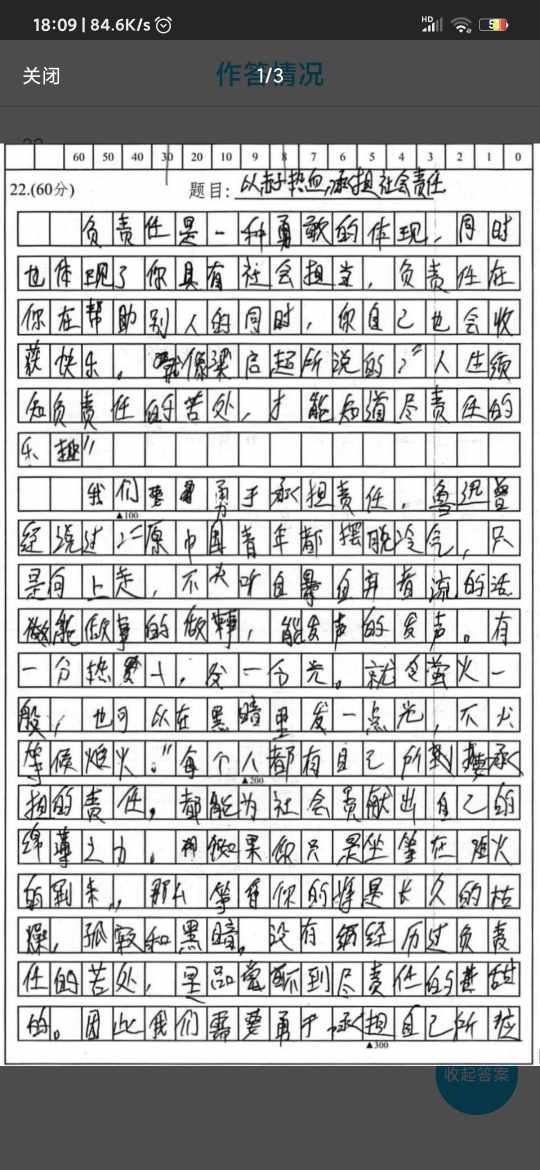 18:09 | 84.6K/s
HD
关闭
1/3
作答情况
60 50 40 30 20 10 9 8 7 6 5 4 3 2 1 0
22.(60分)
题目: 以赤子热血,承担社会责任
负责任是一种勇敢的体现,同时
也体现了你具有社会担当,负责任在
你在帮助别人的同时,你自己也会收
获快乐,就像梁启超所说的:“人生须
知负责任的苦处,才能知道尽责任的
乐趣”
我们要勇于承担责任,鲁迅曾
▲100
经说过:“愿中国青年都摆脱冷气,只
是向上走,不必听自暴自弃者流的话
做能做事的做事,能发声的发声。有
一分热,发一分光。就令萤火一
般,也可以在黑暗里发一点光,不必
等候炬火。”每个人都有自己所承
▲200
担的责任,都能为社会贡献出自己的
绵薄之力,如果你只是坐等在炬火
的到来,那么等着你的将是长久的枯
燥,孤寂和黑暗,没有经历过负责
任的苦处,是品尝不到尽责任的甘甜
的。因此我们需要勇于承担自己所
▲300
收起答案